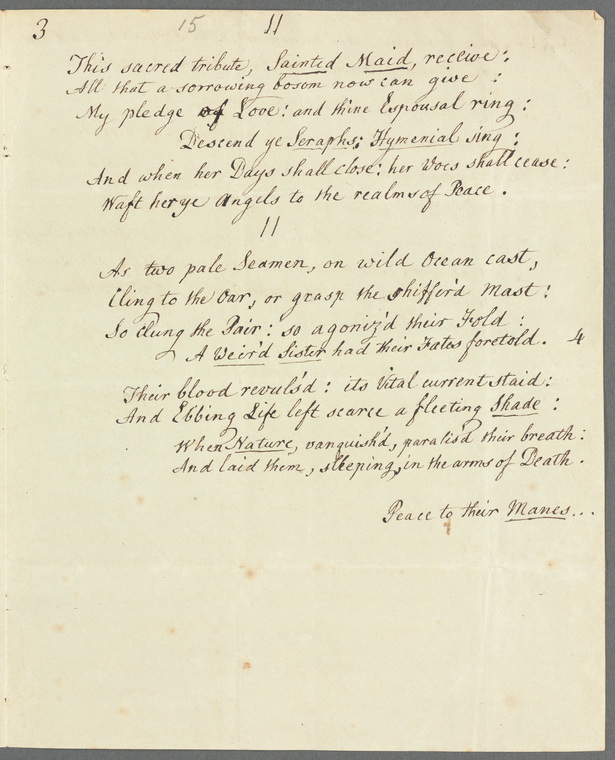 3 15 11
This sacred tribute, Sainted Maid, receive:
All that a sorrowing bosom now can give :
My pledge of Love: and thine Espousal ring:
Descend ye Seraphs; Hymenial sing:
And when her Days shall close: her Woes shall cease:
Waft her ye Angels to the realms of Peace.
11
As two pale Seamen, on wild Ocean cast,
Cling to the Oar, or grasp the shiffer'd Mast:
So clung the Pair: so agoniz'd their Fold:
A Weir'd Sister had their Fates foretold. 4
Their blood revuls'd: its Vital current staid:
And Ebbing Life left scarce a fleeting Shade :
When Nature, vanquish'd, paralis'd their breath:
And laid them, sleeping, in the arms of Death.
Peace to their Manes...